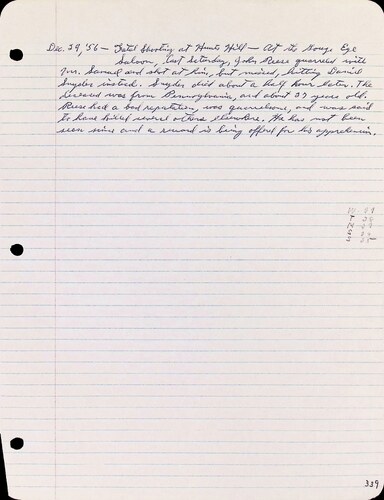 Dec. 29, '56 — Fatal Shooting at Hunts Hill — At the Gouge Eye
Saloon, last Saturday, John Reese quarreled with
Mr. Samuel and shot at him, but missed, hitting Daniel
Snyder instead. Snyder died about a half hour later. The
deceased was from Pennsylvania, and about 37 years old.
Reese had a bad reputation, was quarrelsome, and was said
to have killed several others elsewhere. He has not been
seen since and a reward is being offered for his apprehension.
339